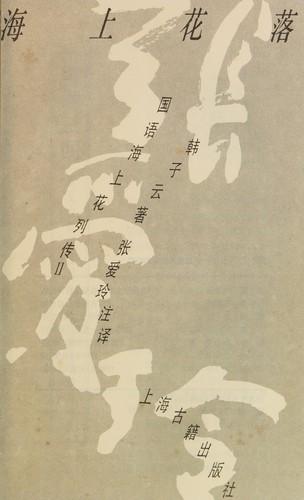 海上花落
張愛玲
国语海上花列传II
韩子云著张爱玲注译
上海古籍出版社